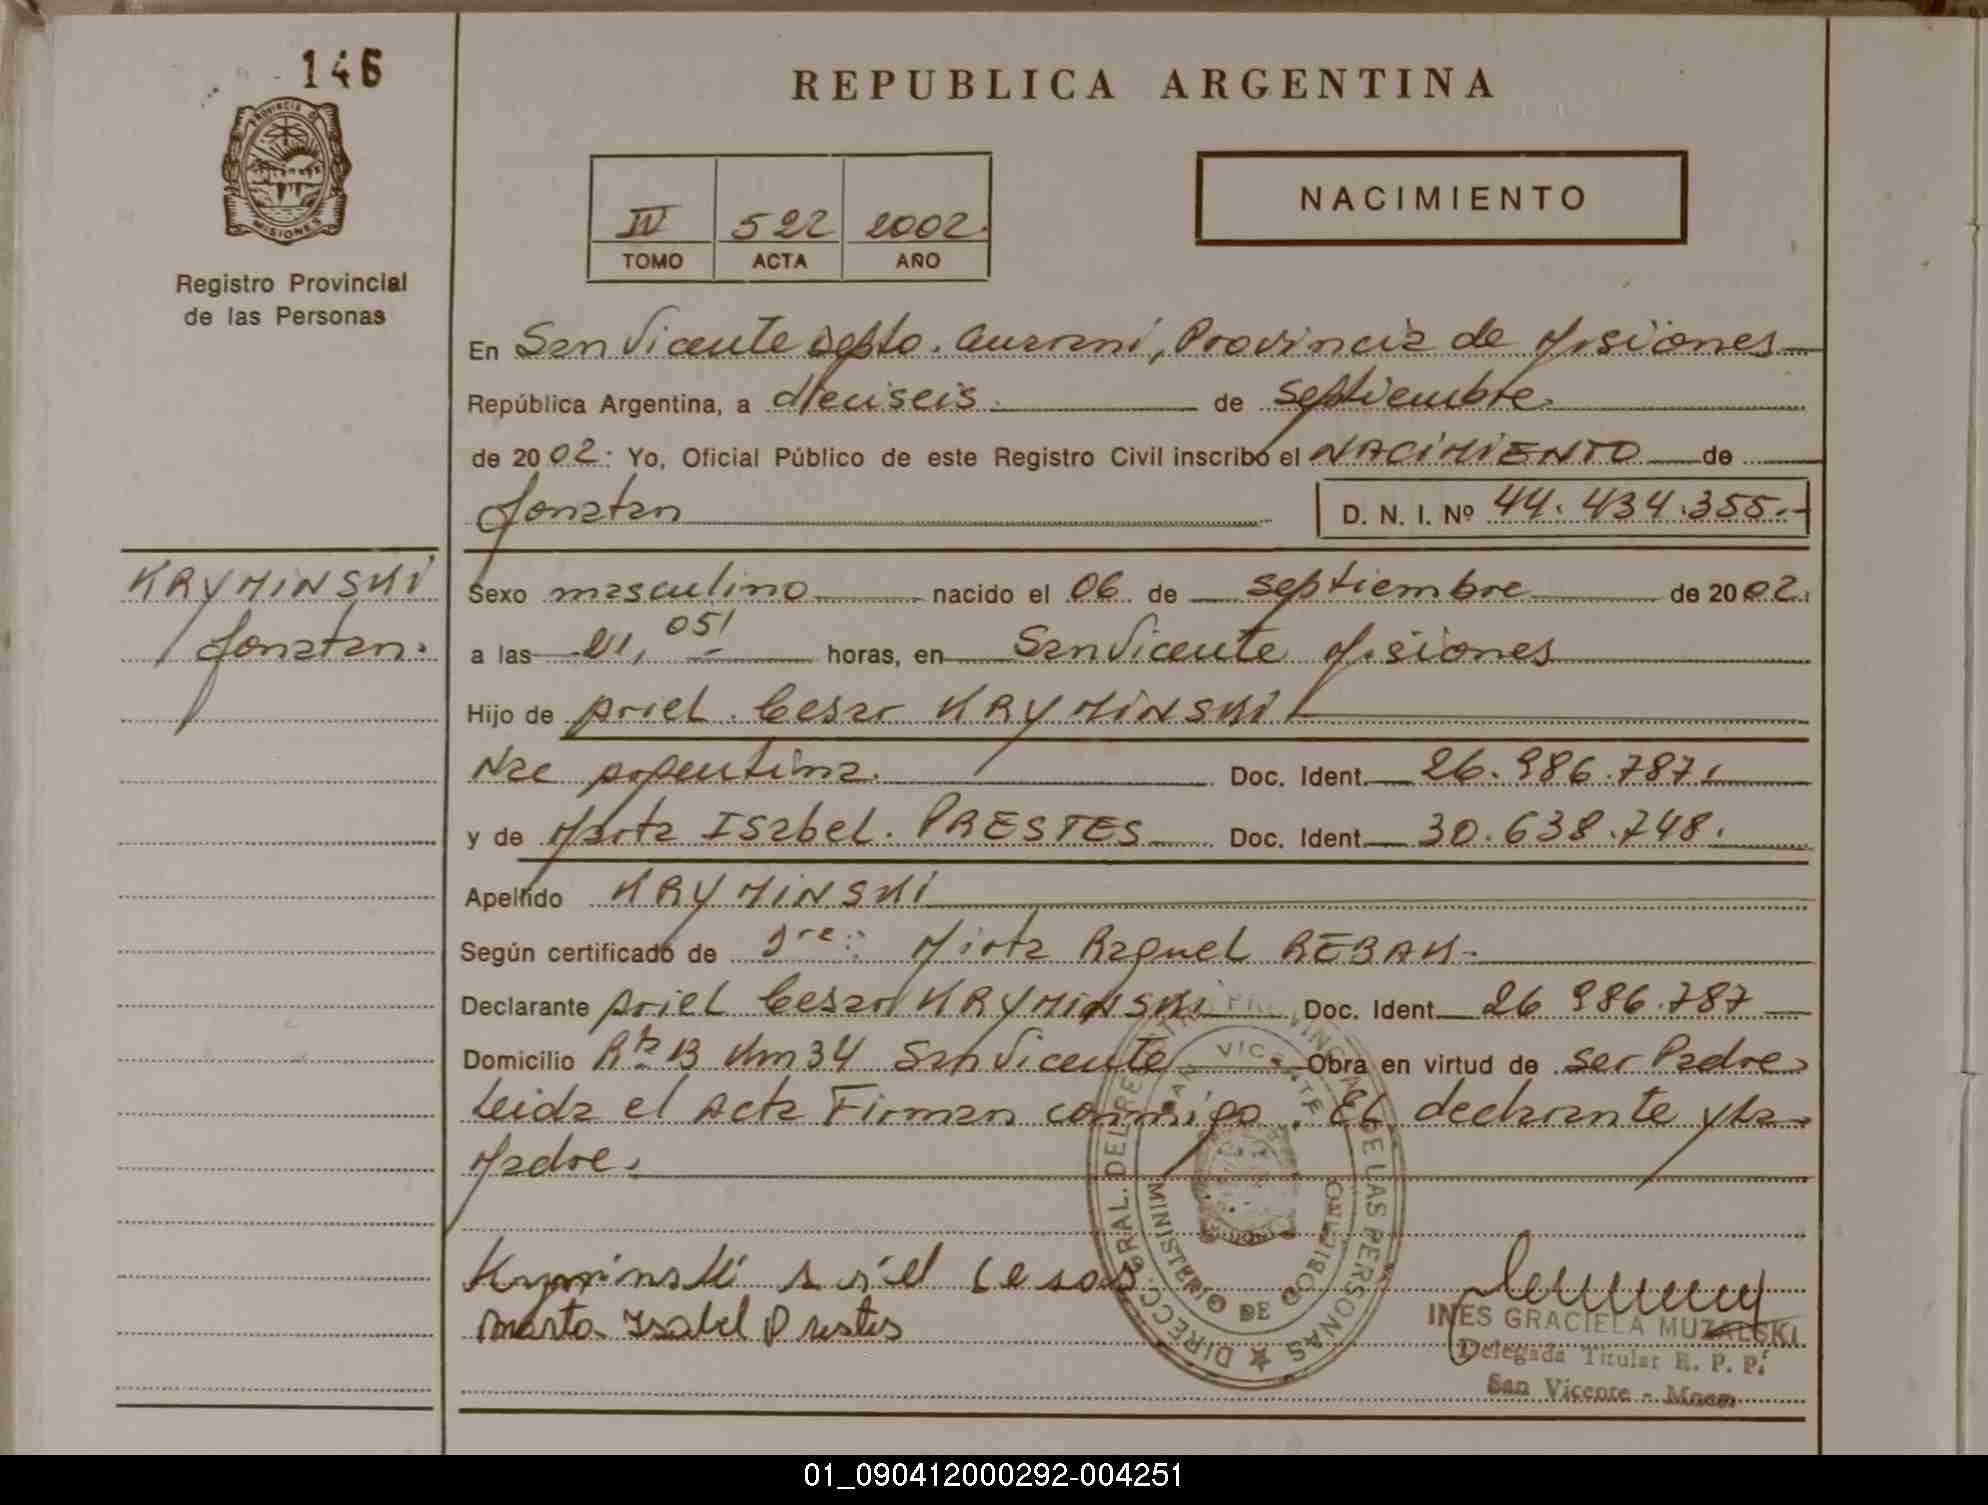 146
REPUBLICA ARGENTINA
PROVINCIA DE
MISIONES
Registro Provincial
de las Personas
IV 522 2002
TOMO ACTA AÑO
NACIMIENTO
En San Vicente Depto. Guarani, Provincia de Misiones
República Argentina, a dieciseis de septiembre
de 2002 Yo, Oficial Público de este Registro Civil inscribo el NACIMIENTO de
Jonatan D. N. I. Nº 44.434.355.-
KRYMINSKI
Jonatan.
Sexo masculino nacido el 06 de septiembre de 2002.
a las 21,05' horas, en San Vicente Misiones
Hijo de Ariel Cesar KRYMINSKI
Nac Argentina. Doc. Ident. 26.986.787.
y de Marta Isabel PRESTES Doc. Ident. 30.638.748.
Apellido KRYMINSKI
Según certificado de Mirta Raquel REBAK.
Declarante Ariel Cesar KRYMINSKI Doc. Ident. 26 986.787
Domicilio Rta 13 Km 34 San Vicente Obra en virtud de ser Padre
Leida el Acta Firman conmigo. El declarante y la
Madre.
Kryminski Ariel Cesar
Marta Isabel Prestes
DIRECC. GRAL. DEL REGISTRO PROVINCIAL DE LAS PERSONAS
SAN VICENTE
MINISTERIO DE GOBIERNO
INES GRACIELA MUZALSKI
Delegada Titular R. P. P.
San Vicente - Mnes
01_090412000292-004251